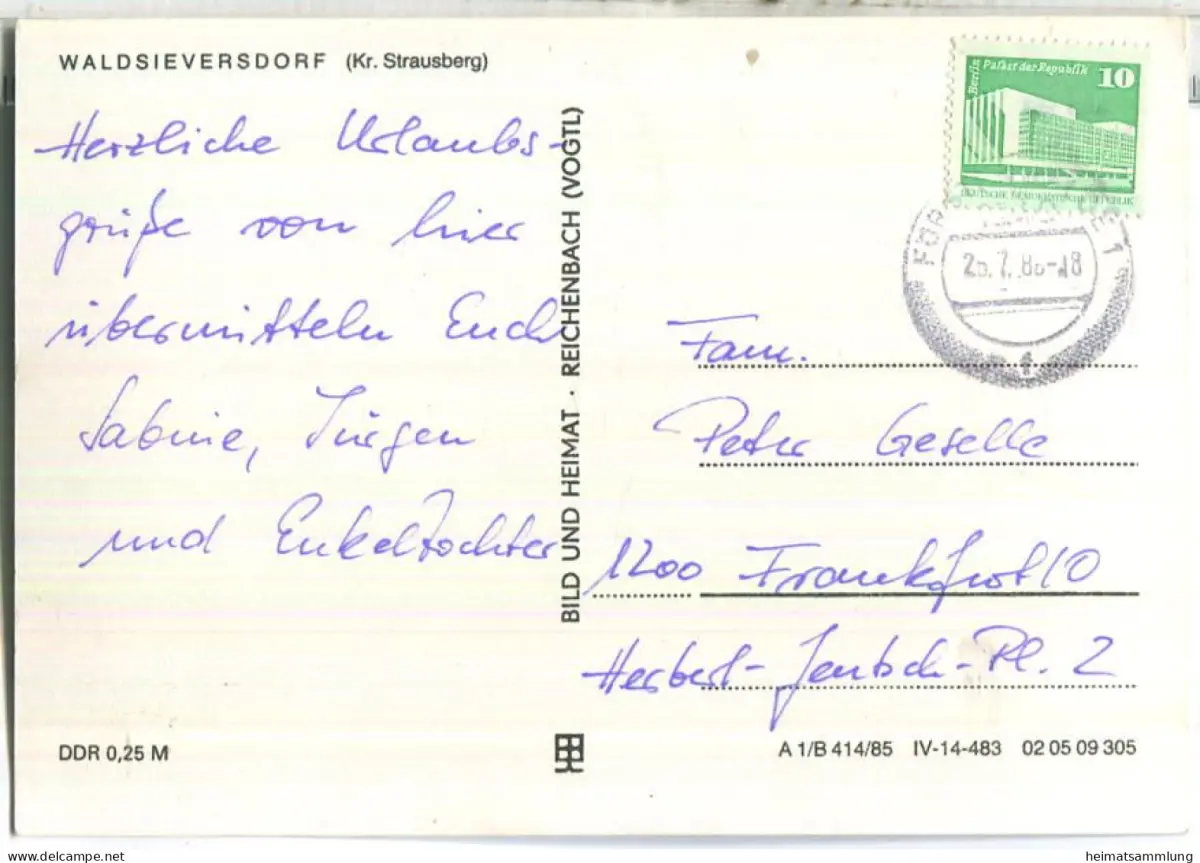 WALDSIEVERSDORF (Kr. Strausberg)
Herzliche Urlaubs-
grüße von hier
übermitteln Euch
Sabine, Jürgen
und Enkeltochter
BILD UND HEIMAT · REICHENBACH (VOGTL)
Berlin Palast der Republik 10
DEUTSCHE DEMOKRATISCHE REPUBLIK
Fam.
Peter Geselle
1200 Frankfurt/O
Herbert-Jentsch-Pl. 2
DDR 0,25 M
A 1/B 414/85 IV-14-483 02 05 09 305
heimatsammlung
https://www.delcampe.net